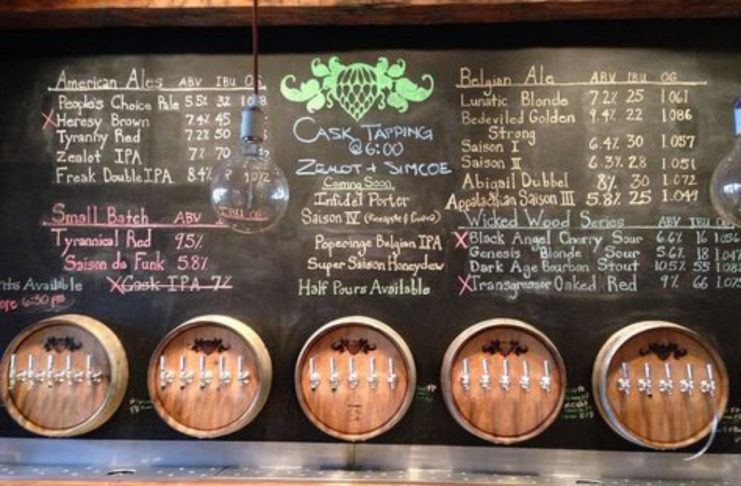 American Ales ABV IBU OG
People's Choice Pale 5.5% 32 1.048
X Heresy Brown 7.4% 45
Tyranny Red 7.2% 50
Zealot IPA 7% 70
Freak Double IPA 8.4%
1.072
Small Batch ABV
Tyrannical Red 9.5%
Saison de Funk 5.8%
X Cask IPA 7%
Available
6:30 pm
Cask Tapping
@ 6:00
Zealot + Simcoe
Coming Soon
Infidel Porter
Saison IV
Poperinge Belgian IPA
Super Saison Honeydew
Half Pours Available
Belgian Ale ABV IBU OG
Lunatic Blonde 7.2% 25 1.061
Bedeviled Golden 9.4% 22 1.086
Strong
Saison I 6.4% 30 1.057
Saison II 6.3% 28 1.051
Abigail Dubbel 8% 30 1.072
Appalachian Saison III 5.8% 25 1.049
Wicked Wood Series ABV IBU OG
X Black Angel Cherry Sour 6.6% 16 1.056
Genesis Blonde Sour 5.6% 18 1.047
Dark Age Bourbon Stout 10.5% 55 1.082
X Transgressor Oaked Red 9% 66 1.075